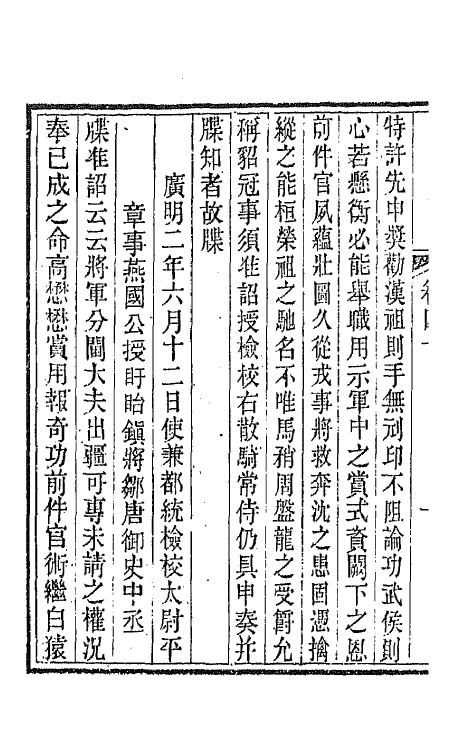 特許先申奬勸漢祖則手無刓印不阻論功武侯則
心若懸衡必能舉職用示軍中之賞式資闕下之恩
前件官夙蘊壯圖久從戎事將救奔沈之患固憑擒
縱之能桓榮祖之馳名不唯馬矟周盤龍之受爵允
稱貂冠事須准詔授檢校右散騎常侍仍具申奏并
牒知者故牒
廣明二年六月十二日使兼都統檢校太尉平
章事燕國公授盱眙鎭將鄒唐御史中丞
牒准詔云云將軍分閫大夫出疆可專未請之權況
奉已成之命高懋懋賞用報奇功前件官術繼白猿